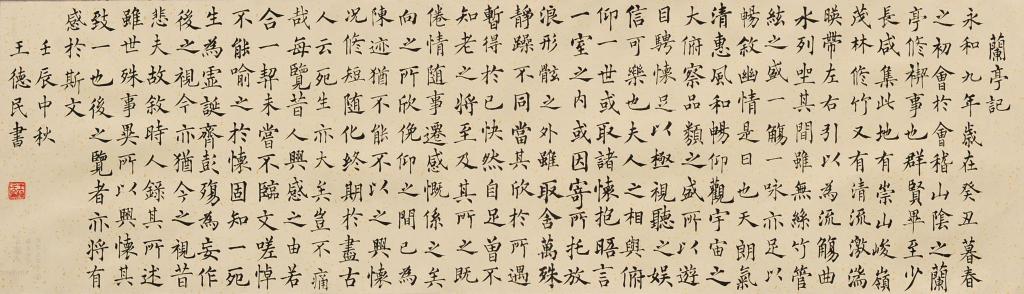 蘭亭記
永和九年歲在癸丑暮春
之初會於會稽山陰之蘭
亭修禊事也群賢畢至少
長咸集此地有崇山峻嶺
茂林修竹又有清流激湍
暎帶左右引以為流觴曲
水列坐其間雖無絲竹管
絃之盛一觴一咏亦足以
暢敘幽情是日也天朗氣
清惠風和暢仰觀宇宙之
大俯察品類之盛所以遊
目騁懷足以極視聽之娛
信可樂也夫人之相與俯
仰一世或取諸懷抱晤言
一室之內或因寄所托放
浪形骸之外雖取舍萬殊
靜躁不同當其欣於所遇
暫得於己快然自足曾不
知老之將至及其所之既
倦情隨事遷感慨係之矣
向之所欣俛仰之間已為
陳迹猶不能不以之興懷
況修短隨化終期於盡古
人云死生亦大矣豈不痛
哉每覽昔人興感之由若
合一契未嘗不臨文嗟悼
不能喻之於懷固知一死
生為虛誕齊彭殤為妄作
後之視今亦猶今之視昔
悲夫故敘時人錄其所述
雖世殊事異所以興懷其
致一也後之覽者亦將有
感於斯文
壬辰中秋
王德民書